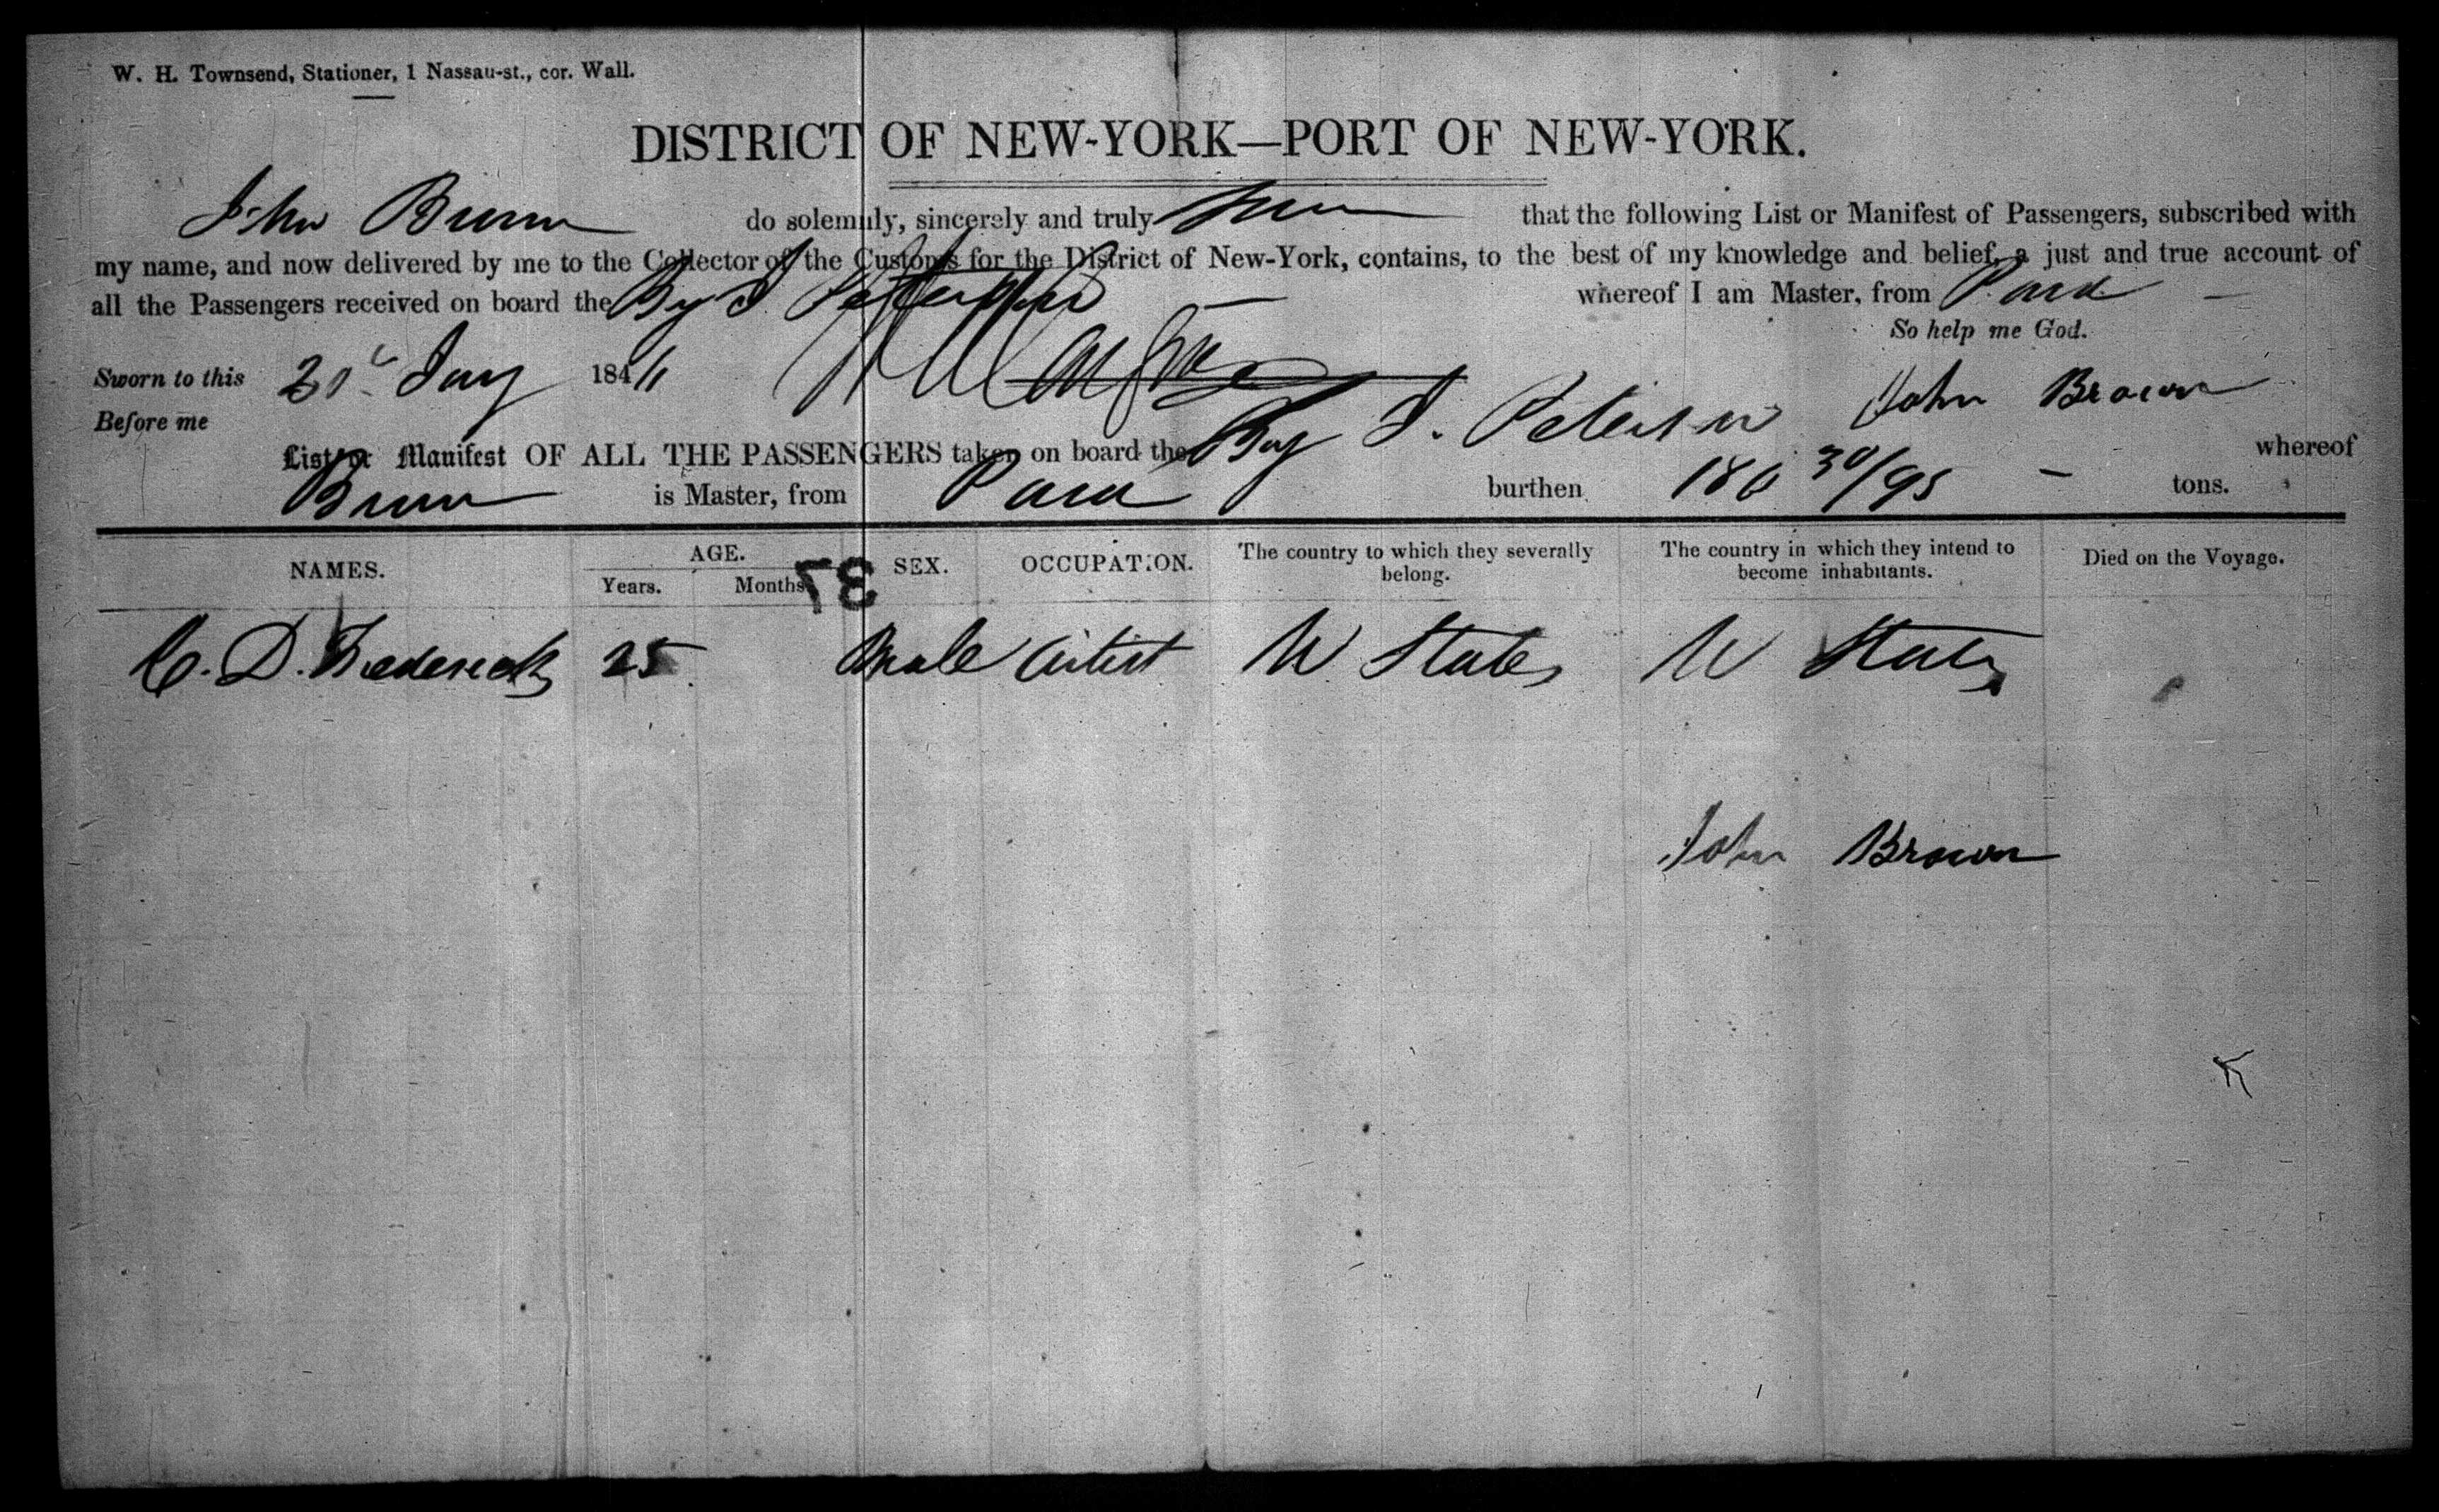 W. H. Townsend, Stationer, 1 Nassau-st., cor. Wall.
DISTRICT OF NEW-YORK—PORT OF NEW-YORK.
John Brown do solemnly, sincerely and truly that the following List or Manifest of Passengers, subscribed with
my name, and now delivered by me to the Collector of the Customs for the District of New-York, contains, to the best of my knowledge and belief, a just and true account of
all the Passengers received on board the whereof I am Master, from Para
So help me God.
Sworn to this 184
Before me John Brown
List or Manifest OF ALL THE PASSENGERS taken on board the J. Peterson whereof
Brown is Master, from Para burthen 30/95 tons.
NAMES. AGE. SEX. OCCUPATION. The country to which they severally belong. The country in which they intend to become inhabitants. Died on the Voyage.
Years. Months
37
C. D. Fredericks 25 Male Artist U States U States
John Brown